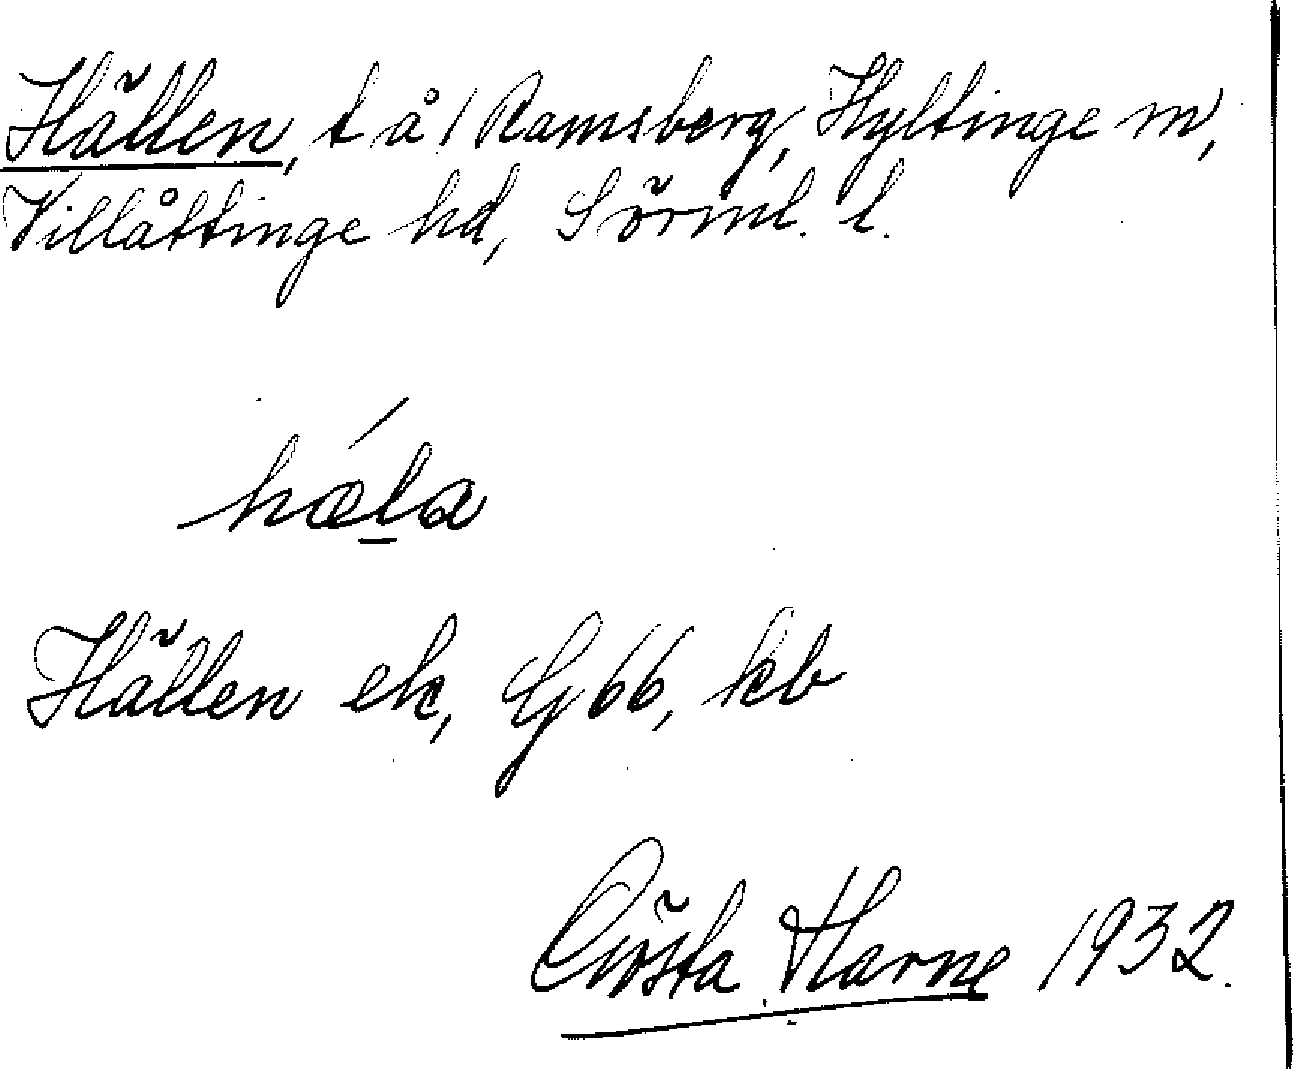 Hällen, t å / Ramsberg, Hyltinge sn,
Villåttinge hd, Sörml. l.
hæ´la
Hällen ek, G 66, kb
Gösta Harne 1932.